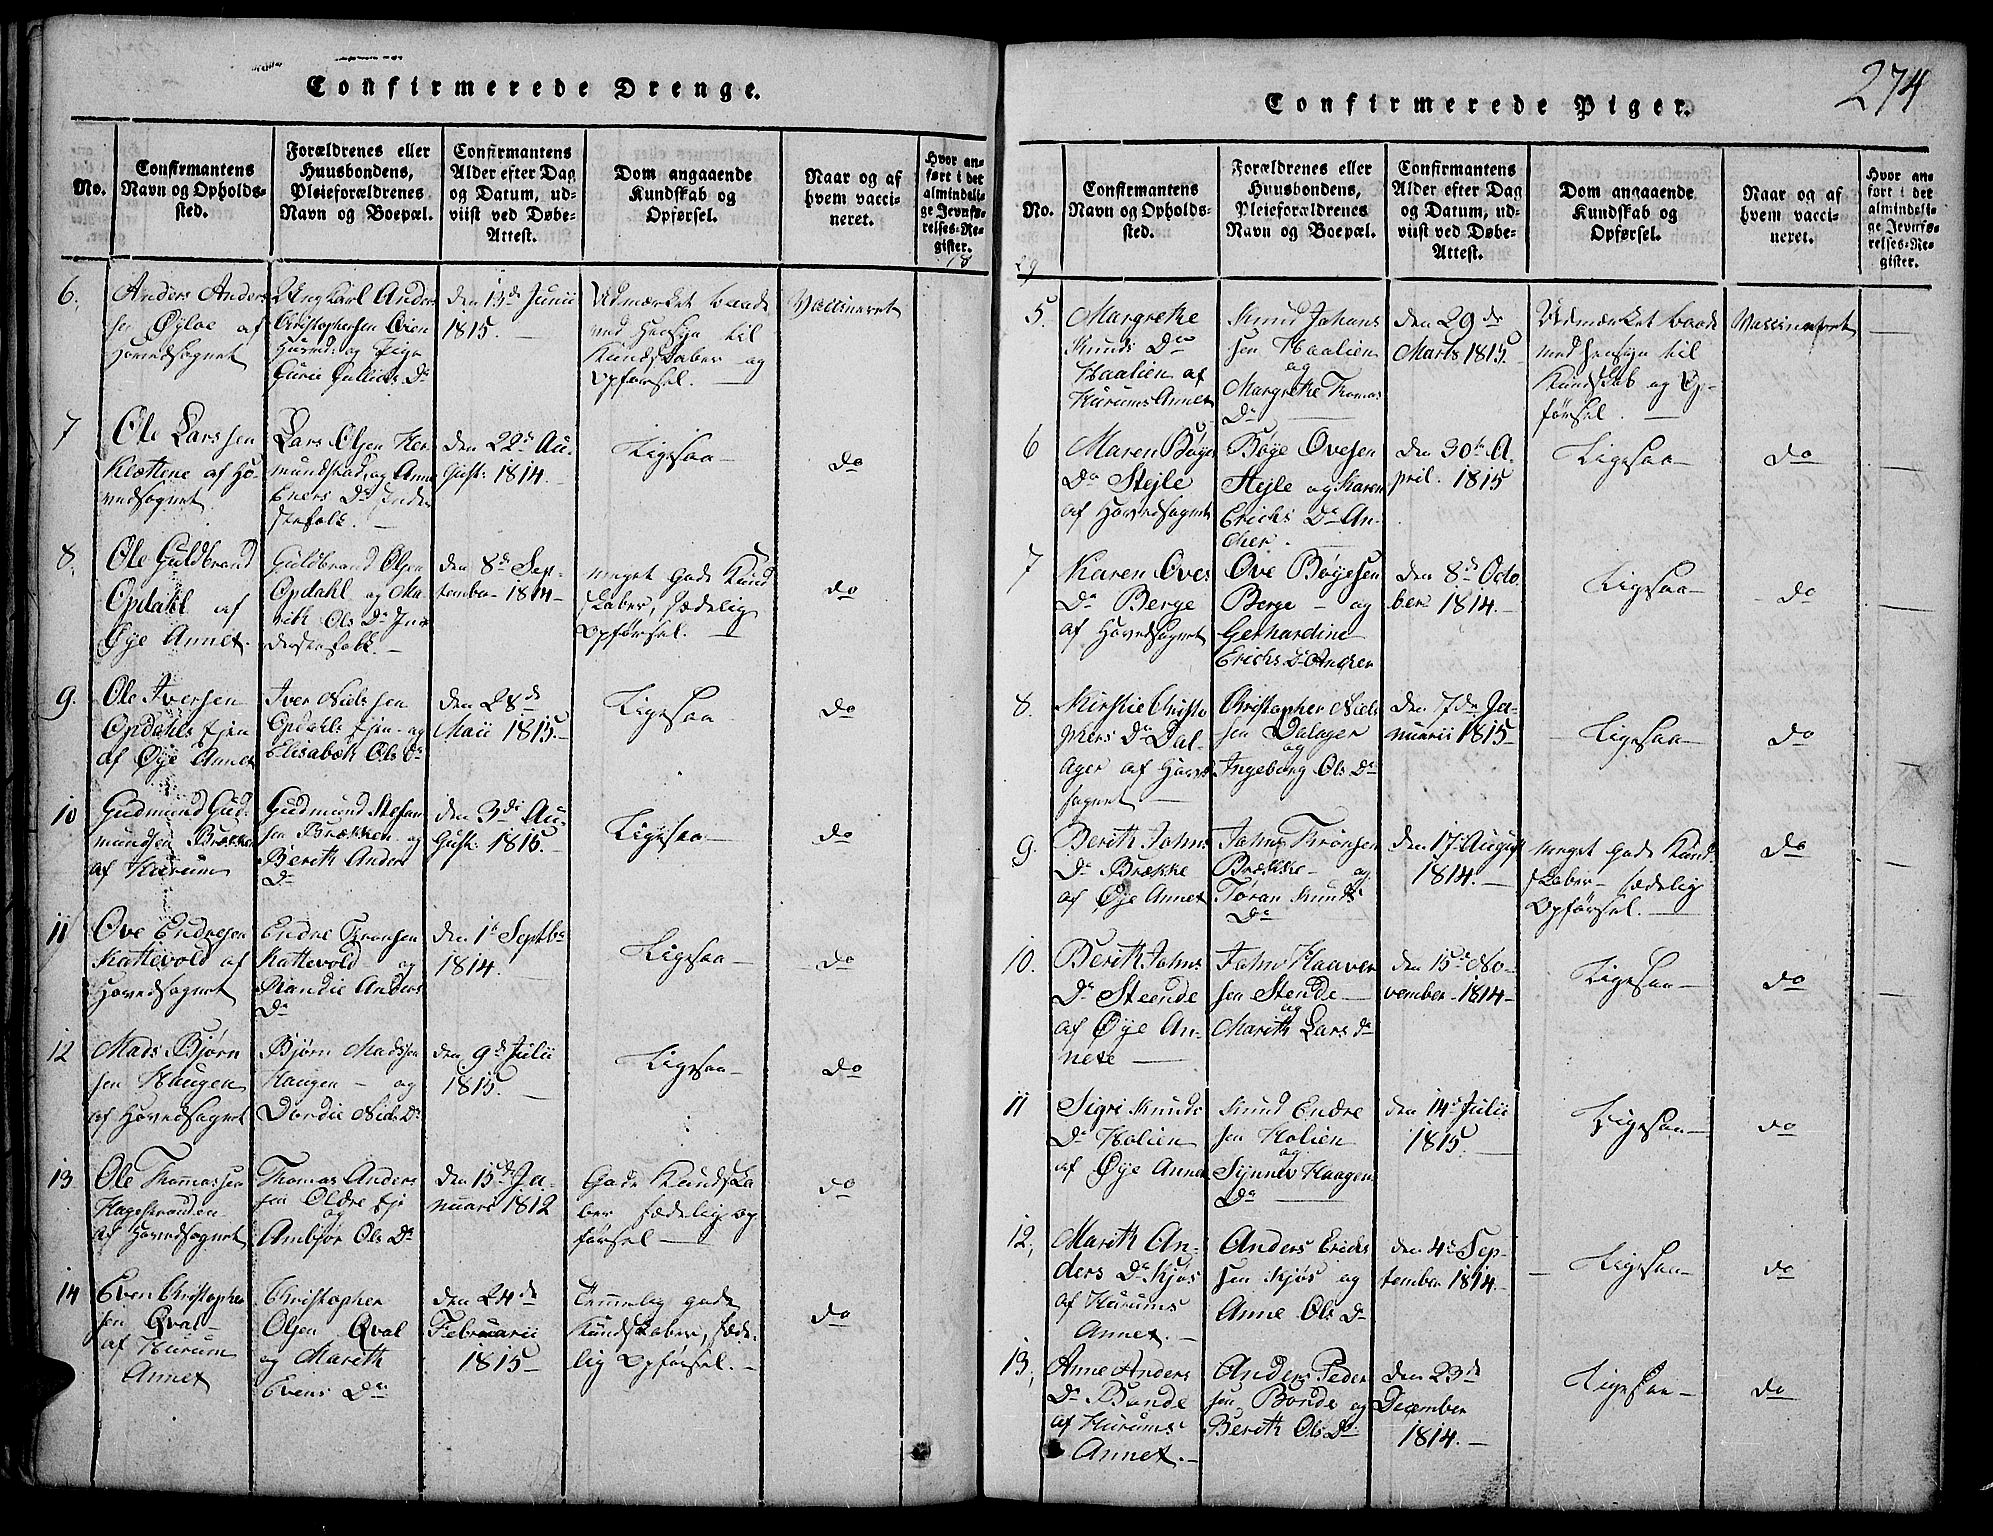 Confirmerede Drenge.
No.
Confirmantens
Navn og Opholds-
sted.
Forældrenes eller
Huusbondens,
Pleieforældrenes
Navn og Boepæl.
Confirmantens
Alder efter Dag
og Datum, ud-
viist ved Døbe-
Attest.
Dom angaaende
Kundskab og
Opførsel.
Naar og af
hvem vacci-
neret.
Hvor an-
ført i det
almindeli-
ge Jevnfø-
relses-Re-
gister.
6.
Anders Anders
sen Øyloe af
Hovedsognet
Ungkarl Anders
Christophersen Øien
og Pige
Gurie Gulliks Dr
den 13de Junii
1815. —
Udmærket baade
med Hensyn til
Kundskaber og
Opførsel. —
Vaccineret
7
Ole Larssen
Klættene af Ho-
vedsognet
Lars Olsen Her-
mundstad og Anne
Eners Dr Inder-
stefolk. —
den 22de Au-
gust: 1814. —
Ligesaa —
do
8.
Ole Guldbrand
Opdahl af
Øye Annex.
Guldbrand Olsen
Opdahl og Ma-
rith Ols Dr In-
derstefolk. —
den 8de Sep-
tember 1814 —
meget gode Kund
skaber, sædelig
Opførsel. —
do
9.
Ole Iversen
Opdahls Ejen
af Øye Annex
Iver Nielssen
Opdahls Ejen — og
Elisabeth Ols Dr
den 28de
Maii 1815. —
Ligesaa —
do
10
Gudmund Gud-
mundsen Brække
af Hurum
Gudmund Stefen
sen Brækken — og
Berith Anders
Dr
den 3de Au-
gust: 1815. —
Ligesaa —
do
11
Ove Endresen
Kattevold af
Hovedsognet
Endre Tronsen
Kattevold — og
Randie Anders
Dr
den 1te Septbr
1814. —
Ligesaa —
do
12
Mads Bjørn
sen Haugen
af Hovedsognet
Bjørn Madssen
Haugen — og
Dordie Niels Dr
den 9de Julii
1815. —
Ligesaa —
do
13
Ole Thomassen
Hagestranden
af Hovedsognet
Thomas Anders
sen Oldre Eje
og
Ambjør Ols Dr
den 15de Ja-
nuari 1812
Gode Kundska
ber sædelig op
førsel —
do
14
Even Christopher
sen Qval —
af Hurum
Annex
Christopher
Olsen Qval
og Marith
Evens Dr
den 24de
Februarii
1815 —
Temmelig gode
Kundskaber, sæde-
lig Opførsel. —
do
274
Confirmerede Piger.
No.
Confirmantens
Navn og Opholds-
sted.
Forældrenes eller
Huusbondens,
Pleieforældrenes
Navn og Boepæl.
Confirmantens
Alder efter Dag
og Datum, ud-
viist ved Døbe-
Attest.
Dom angaaende
Kundskab og
Opførsel.
Naar og af
hvem vacci-
neret.
Hvor an-
ført i det
almindeli-
ge Jevnfø-
relses-Re-
gister.
5.
Margrethe
Knuds Dr
Haalien af
Hurums Annex
Knud Johans
sen Haalien
og
Margrethe Thomas
Dr
den 29de
Marts 1815. —
Udmærket baade
med Hensyn til
Kundskab og Op-
førsel. —
Vaccineret
6
Maren Bøye
Dr Stejle
af Hovedsognet
Bøye Ovesen
Stejle og Karen
Erichs Dr An-
cher. —
den 30te A-
pril. 1815
Ligesaa —
do
7
Karen Oves
Dr Berge
af Hovedsognet
Ove Bøyesen
Berge — og
Gerhardine
Erichs Dr Ancher
den 8de Octo
ber 1814. —
Ligesaa —
do
8.
Kirstie Christo
phers Dr Dal-
ager af Hoved-
sognet —
Christopher Niels
sen Dalager
og
Ingeborg Ols Dr
den 7de Ja-
nuarii 1815 —
Ligesaa —
do
9.
Berith Johns
Dr Brække
af Øye Annex
Johns Tronsen
Brække — og
Tøran Knuds
Dr
den 17de August
1814. —
meget gode Kund
skaber — sædelig
Opførsel. —
do
10.
Berith Johns
Dr Steende
af Øye An-
nexe —
John Haaver
sen Stende —
og
Marith Lars Dr
den 15de No-
vember 1814 —
Ligesaa —
do
11
Sigri Knuds
Dr Holien
af Øye Annex
Knud Endre
sen Holien
og
Synnev Haagen
Dr —
den 14de Julii
1815. —
Ligesaa —
do
12.
Marith An-
ders Dr Kjøs
af Hurums
Annex. —
Anders Erich
sen Kjøs og
Anne Ols Dr
den 4de Sep-
tember 1814. —
Ligesaa —
do
13.
Anne Anders
Dr Bunde
af Hurums
Annex. —
Anders Peder
sen Bonde og
Berith Ols Dr
den 23de
December
1814. —
Ligesaa —
do